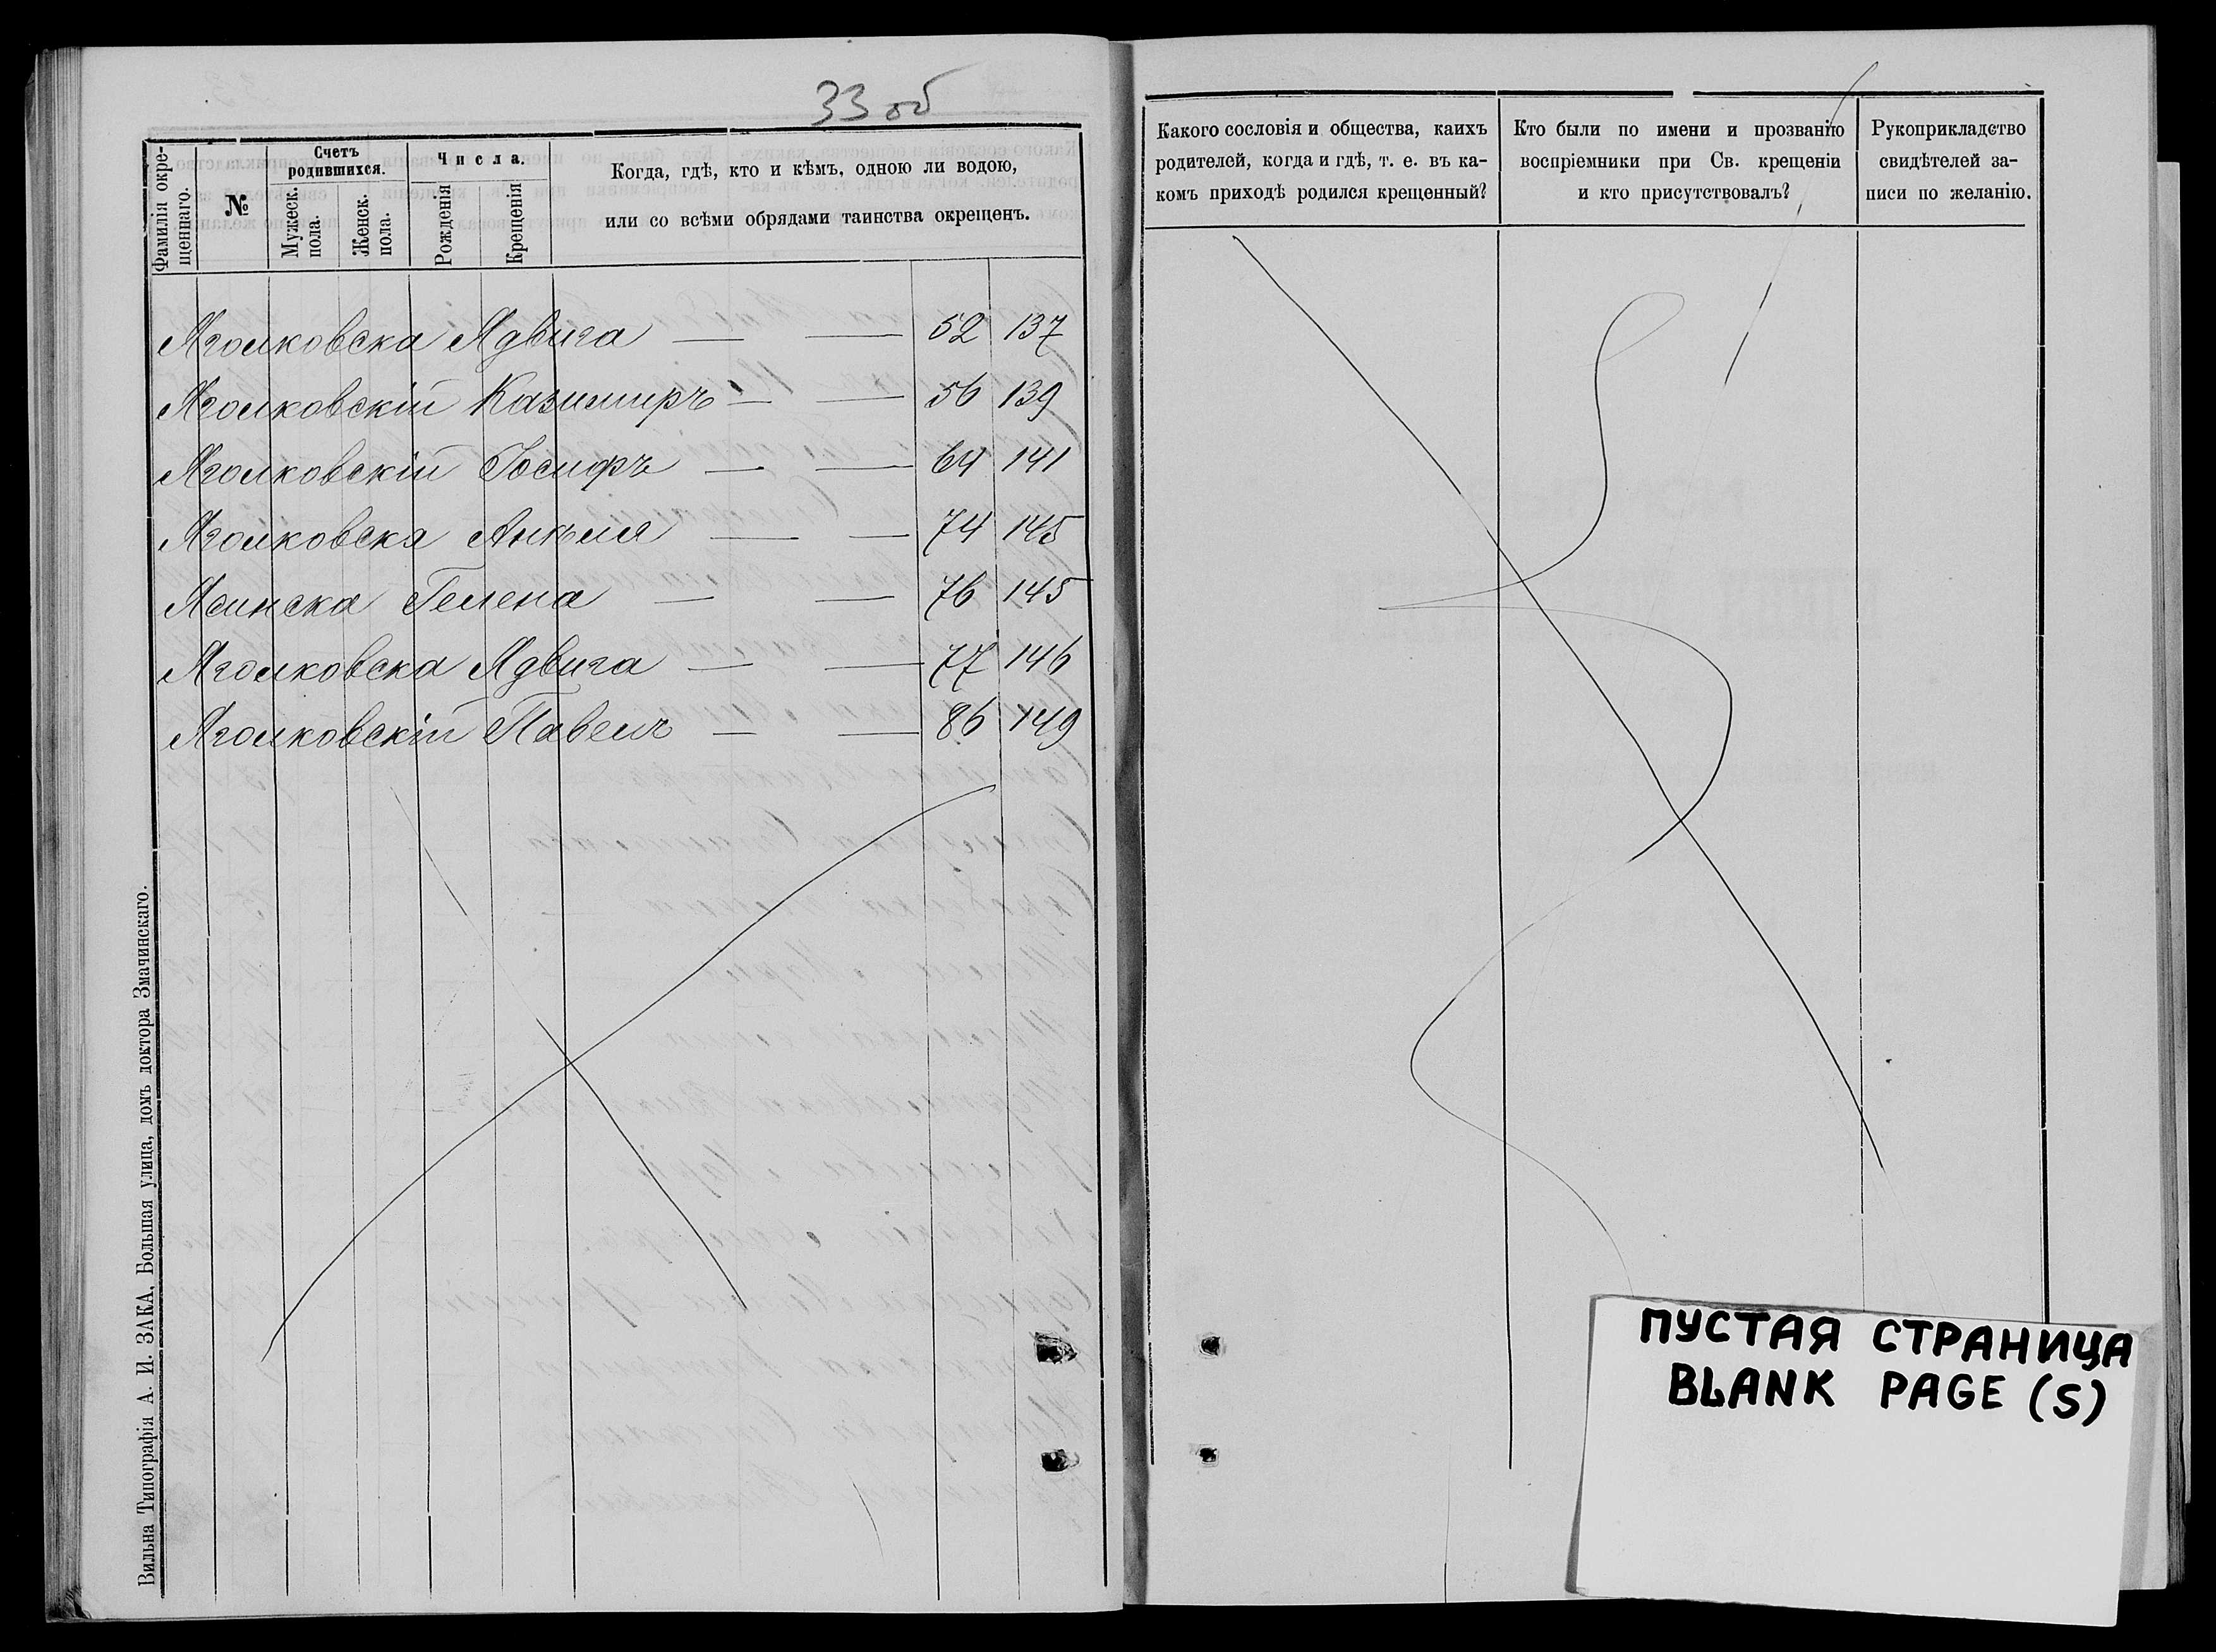 33 об
Фамилія окре-
щеннаго.
№
Счетъ
родившихся.
Мужеск.
пола.
Женск.
пола.
Числа.
Рожденія
Крещенія
Когда, гдѣ, кто и кѣмъ, одною ли водою,
или со всѣми обрядами таинства окрещенъ.
Яголковска Ядвига — — 52 137
Яголковскій Казимиръ — — 56 139
Яголковскій Іосифъ — — 64 141
Яголковска Анѣля — — 74 145
Ясинска Гелена — — 76 145
Яголковска Ядвига — — 77 146
Яголковскій Павелъ — — 86 149
Вильна Типографія А. И. ЗАКА, Большая улица, домъ доктора Змачинскаго.
Какого сословія и общества, каихъ
родителей, когда и гдѣ, т. е. въ ка-
комъ приходѣ родился крещенный?
Кто были по имени и прозванію
воспріемники при Св. крещеніи
и кто присутствовалъ?
Рукоприкладство
свидѣтелей за-
писи по желанію.
ПУСТАЯ СТРАНИЦА
BLANK PAGE (S)